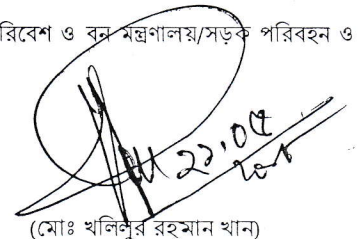 রিবেশ ও বন মন্ত্রণালয়/সড়ক পরিবহন ও
(মোঃ খলিলুর রহমান খান)